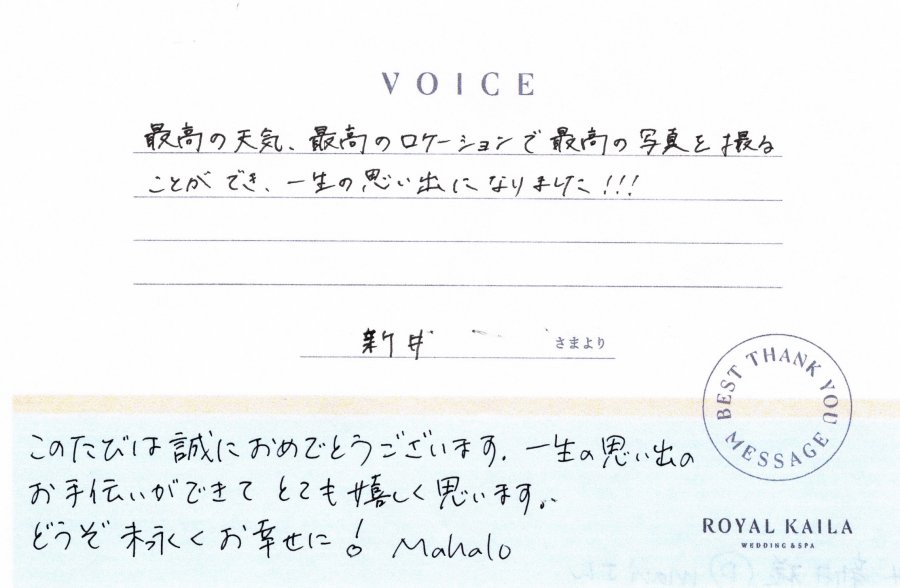 VOICE
最高の天気、最高のロケーションで最高の写真を撮る
ことができ、一生の思い出になりました!!!
新井
さまより
BEST THANK YOU MESSAGE
このたびは誠におめでとうございます。一生の思い出の
お手伝いができてとても嬉しく思います。
どうぞ末永くお幸せに! Mahalo
ROYAL KAILA
WEDDING & SPA